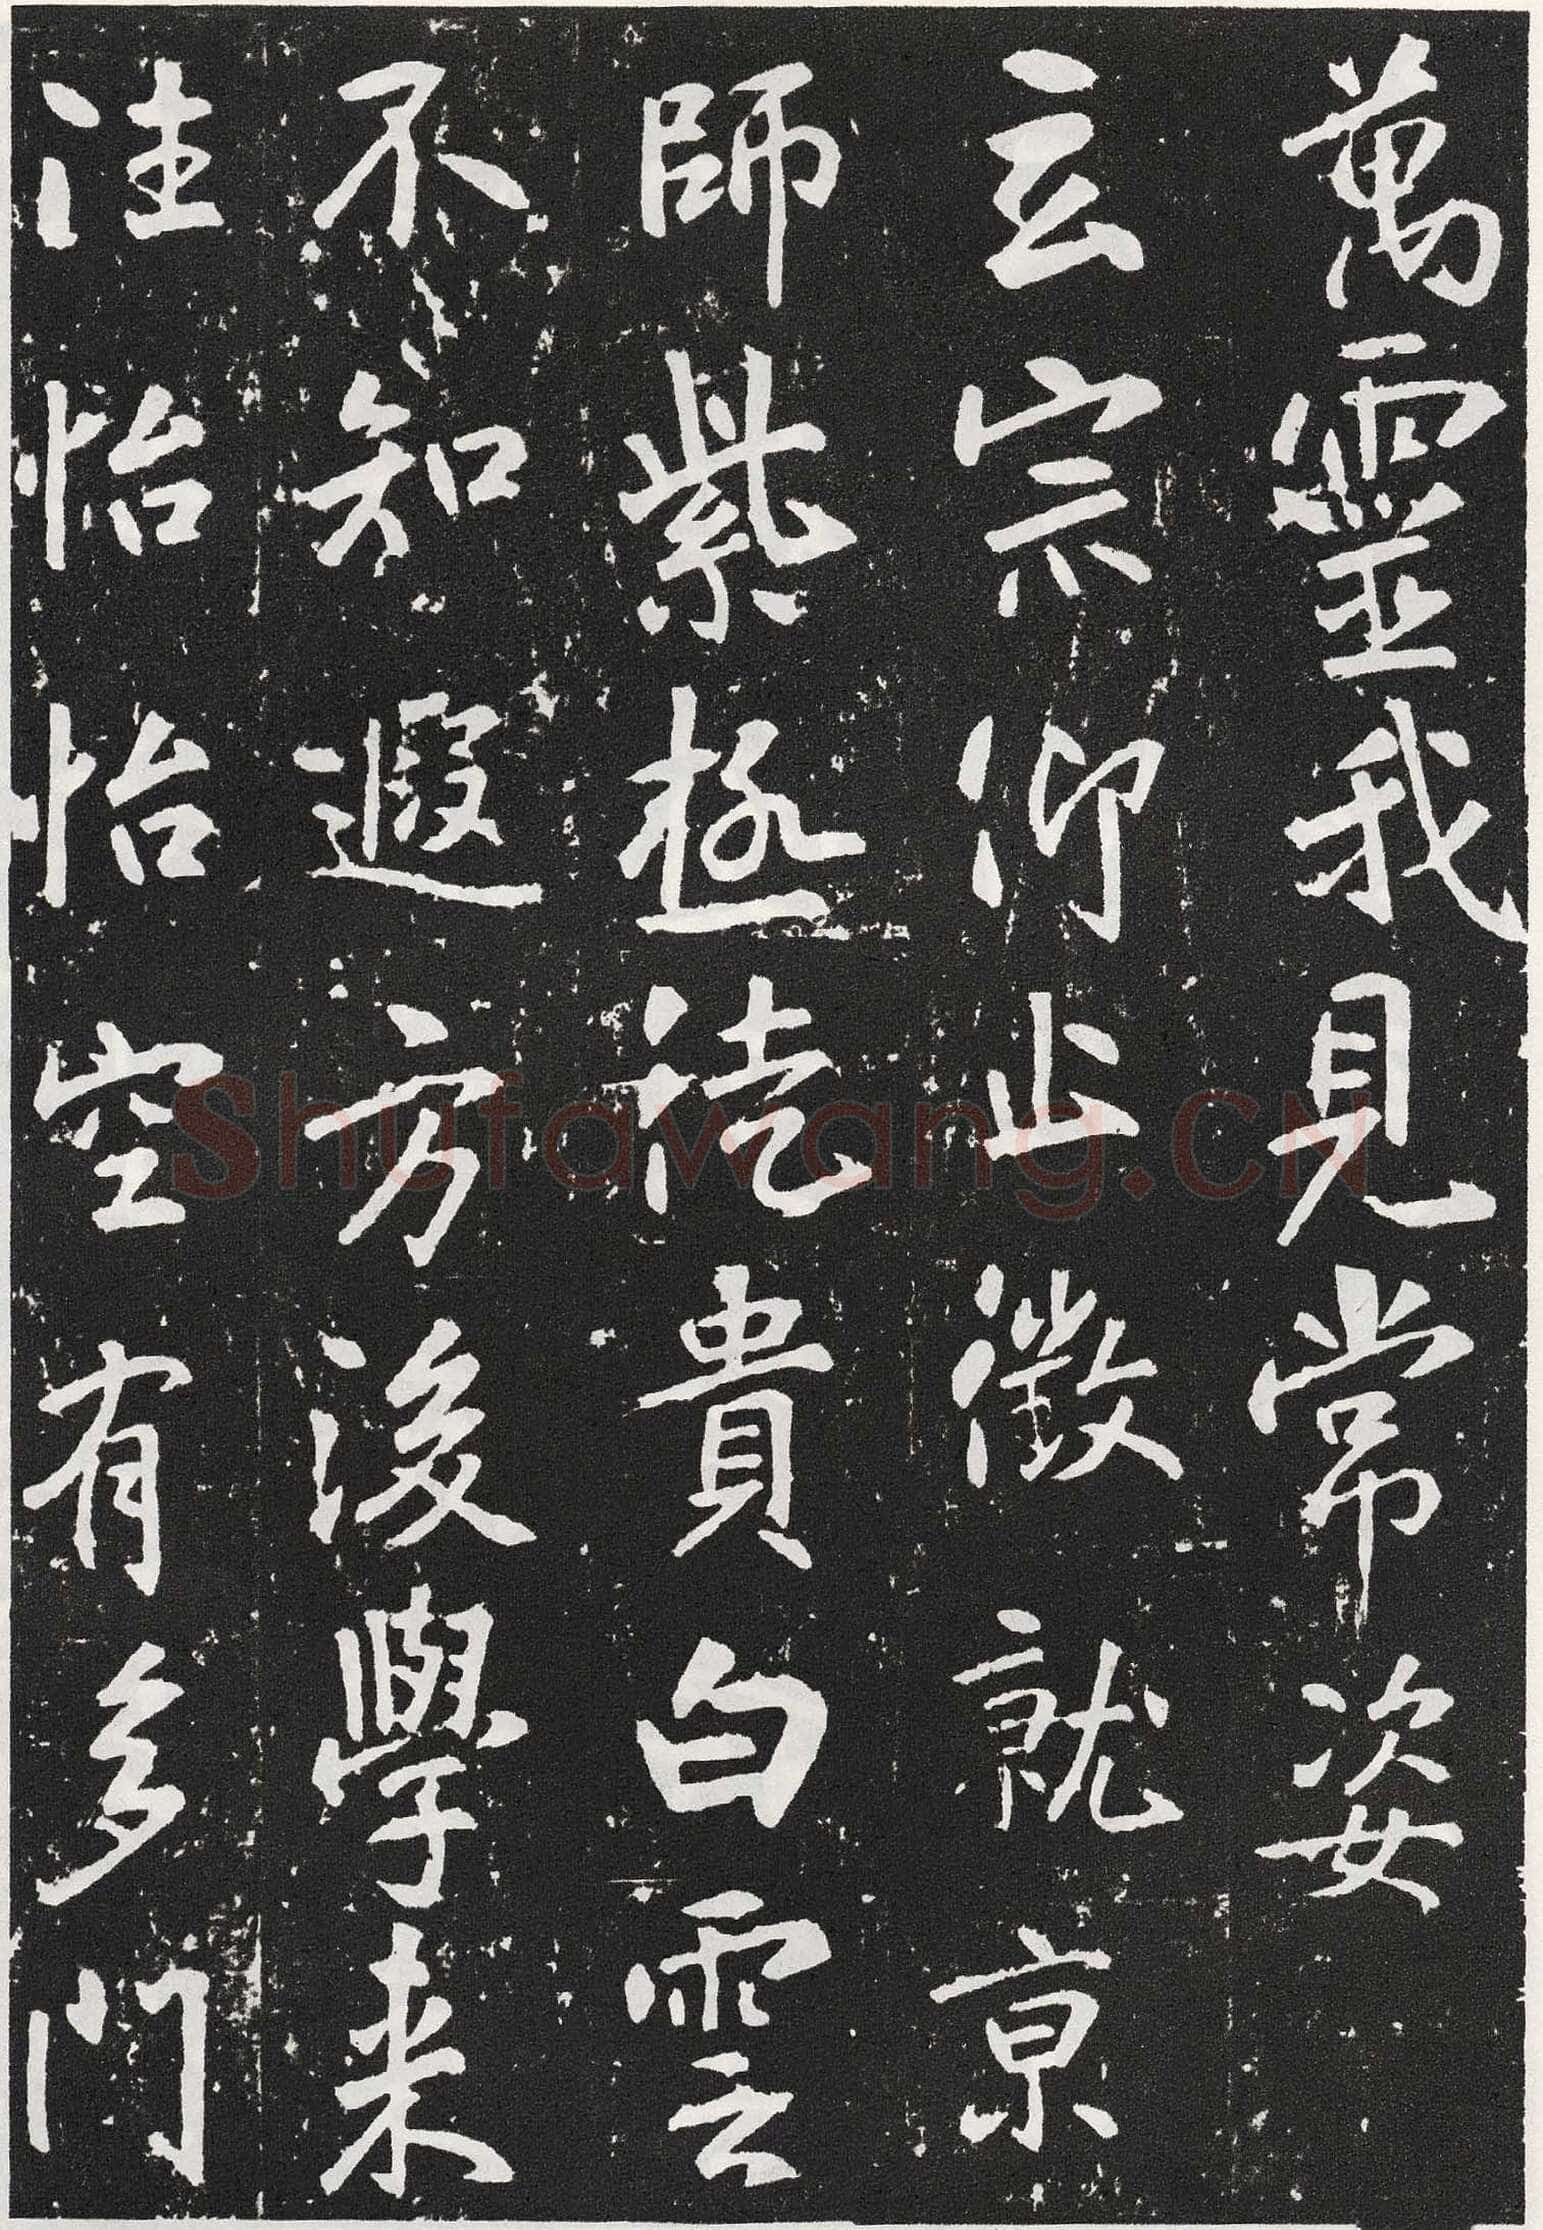 萬靈我見常姿
玄宗仰止徵就京
師紫極徒貴白雲
不知遐方後學來
注怡怡空有多門
Shufawang.CN